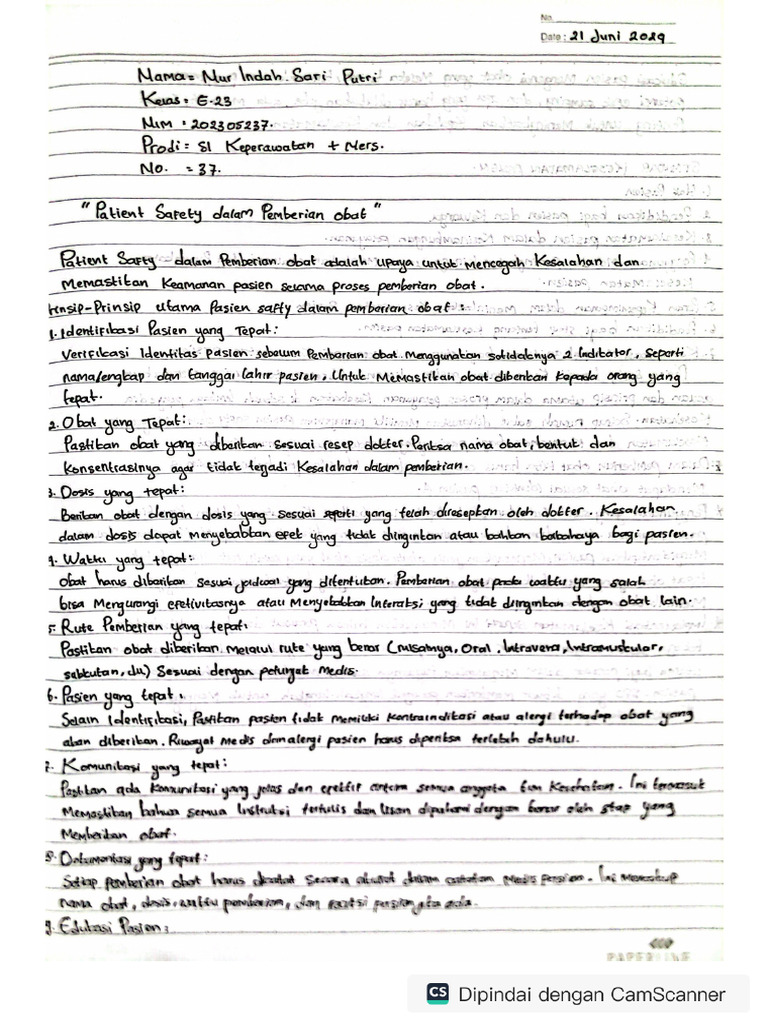 No.
Date: 21 Juni 2029
Nama = Nur Indah Sari Putri
Kelas = E.23
NIM = 202305237.
Prodi = S1 Keperawatan + Ners.
No. = 37.
"Patient Safety dalam Pemberian obat"
Patient Safty dalam Pemberian obat adalah upaya untuk mencegah Kesalahan dan
Memastikan Keamanan pasien selama proses pemberian obat.
Prinsip-Prinsip utama Pasien safty dalam pemberian obat:
1. Identifikasi Pasien yang Tepat:
Verifikasi Identitas pasien sebelum Pemberian obat Menggunakan setidaknya 2 Indikator, seperti
nama lengkap dan tanggal lahir pasien, Untuk Memastikan obat diberikan kepada orang yang
tepat.
2. Obat yang Tepat:
Pastikan obat yang diberikan sesuai resep dokter. Periksa nama obat, bentuk dan
konsentrasinya agar tidak terjadi Kesalahan dalam pemberian.
3. Dosis yang tepat:
Berikan obat dengan dosis yang sesuai yang telah diresepkan oleh dokter. Kesalahan
dalam dosis dapat Menyebabkan efek yang tidak diinginkan atau bahkan berbahaya bagi pasien.
4. Waktu yang tepat:
Obat harus diberikan sesuai jadwal yang ditentukan. Pemberian obat pada waktu yang salah
bisa Mengurangi efektivitasnya atau Menyebabkan Interaksi yang tidak diinginkan dengan obat lain.
5. Rute Pemberian yang tepat:
Pastikan obat diberikan melalui rute yang benar (misalnya, Oral, Intravena, Intramuskular,
subkutan, dll) Sesuai dengan petunjuk Medis.
6. Pasien yang tepat:
Selain Identifikasi, Pastikan pasien tidak Memiliki Kontraindikasi atau alergi terhadap obat yang
akan diberikan. Riwayat Medis dan alergi pasien harus diperiksa terlebih dahulu.
7. Komunikasi yang tepat:
Pastikan ada Komunikasi yang jelas dan efektif antara semua anggota tim Kesehatan. Ini termasuk
Memastikan bahwa semua Instruksi tertulis dan lisan dipahami dengan benar oleh staf yang
Memberikan obat.
8. Dokumentasi yang tepat:
Setiap pemberian obat harus dicatat secara akurat dalam catatan Medis pasien. Ini Mencakup
nama obat, dosis, waktu pemberian, dan reaksi pasien jika ada.
9. Edukasi Pasien:
PAPERLINE
CS Dipindai dengan CamScanner